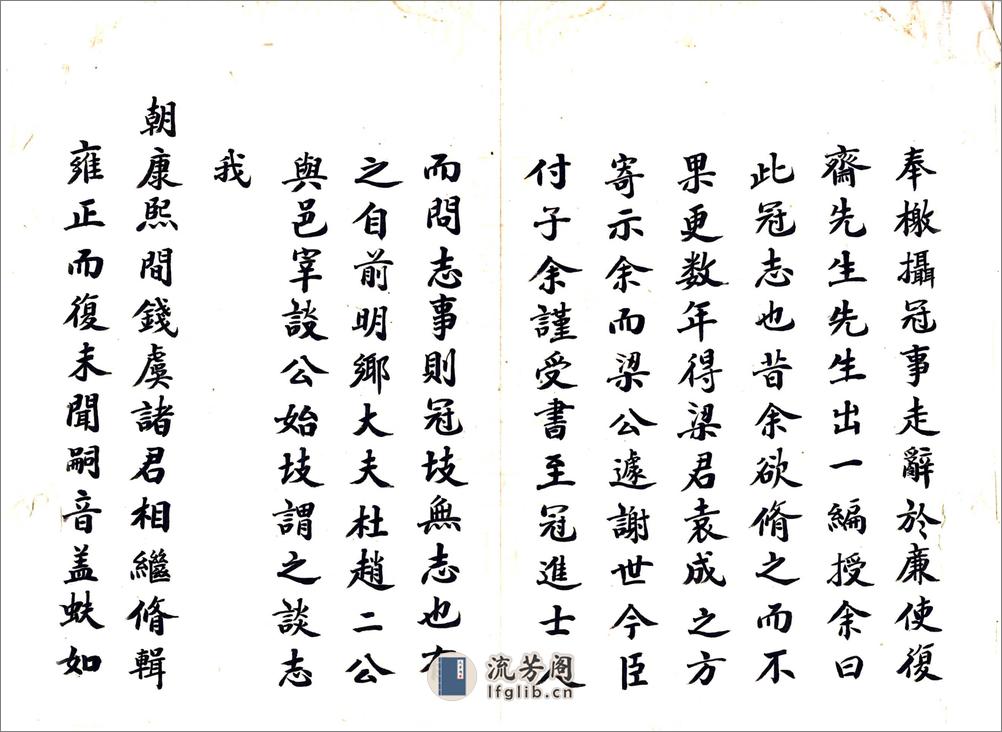 奉檄攝冠事走辭於廉使復
齋先生先生出一編授余曰
此冠志也昔余欲脩之而不
果更数年得梁君袁成之方
寄示余而梁公遽謝世今臣
付子余謹受書至冠進士
而問志事則冠故無志也
之自前明鄉大夫杜趙二公
與邑宰談公始故謂之談志
我
朝康熙間錢虞諸君相繼脩輯
雍正而復未聞嗣音盖蚨如
流芳阁
lfglib.cn